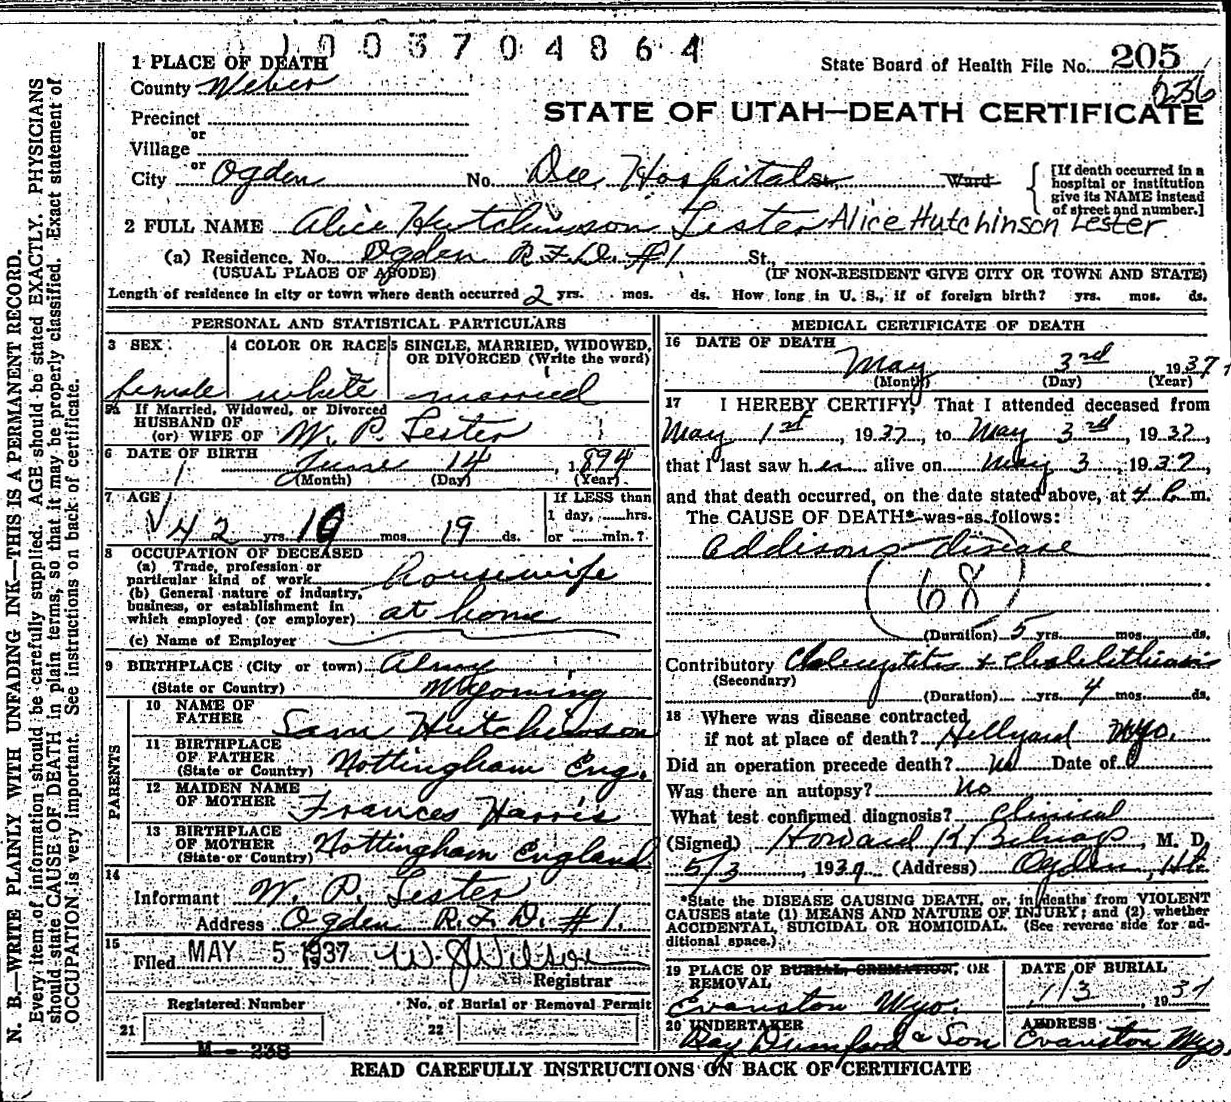 1003704864
1 PLACE OF DEATH
State Board of Health File No. 205
236
County Weber
STATE OF UTAH—DEATH CERTIFICATE
Precinct
or
Village
or
City Ogden No. Dee Hospital St., Ward
[If death occurred in a
hospital or institution
give its NAME instead
of street and number.]
2 FULL NAME Alice Hutchinson Lester Alice Hutchinson Lester
(a) Residence. No. Ogden R.F.D. #1 St.,
(USUAL PLACE OF ABODE) (IF NON-RESIDENT GIVE CITY OR TOWN AND STATE)
Length of residence in city or town where death occurred 2 yrs. mos. ds. How long in U. S., if of foreign birth? yrs. mos. ds.
PERSONAL AND STATISTICAL PARTICULARS
3 SEX 4 COLOR OR RACE 5 SINGLE, MARRIED, WIDOWED,
OR DIVORCED (Write the word)
female white married
5a If Married, Widowed, or Divorced
HUSBAND OF
(or) WIFE OF W. P. Lester
6 DATE OF BIRTH June 14, 1894
(Month) (Day) (Year)
7 AGE If LESS than
1 day, hrs.
42 yrs. 10 mos. 19 ds. or min.?
8 OCCUPATION OF DECEASED
(a) Trade, profession or
particular kind of work housewife
(b) General nature of industry,
business, or establishment in
which employed (or employer) at home
(c) Name of Employer
9 BIRTHPLACE (City or town) Almy
(State or Country) Wyoming
PARENTS
10 NAME OF
FATHER Sam Hutchinson
11 BIRTHPLACE
OF FATHER
(State or Country) Nottingham Eng.
12 MAIDEN NAME
OF MOTHER Frances Harris
13 BIRTHPLACE
OF MOTHER
(State or Country) Nottingham England
14
Informant W. P. Lester
Address Ogden R.F.D. #1.
15
Filed MAY 5 1937 W J Wilson
Registrar
Registered Number No. of Burial or Removal Permit
21 22
M — 238
MEDICAL CERTIFICATE OF DEATH
16 DATE OF DEATH
May 3rd 1937
(Month) (Day) (Year)
17 I HEREBY CERTIFY, That I attended deceased from
May 1st, 1937, to May 3rd, 1937,
that I last saw her alive on May 3, 1937,
and that death occurred, on the date stated above, at 4 P. m.
The CAUSE OF DEATH* was as follows:
Addisons disease
68
(Duration) 5 yrs. mos. ds.
Contributory & Cholelithiasis
(Secondary)
(Duration) yrs. 4 mos. ds.
18 Where was disease contracted
if not at place of death? Wyo.
Did an operation precede death? no Date of
Was there an autopsy? No
What test confirmed diagnosis? Clinical
(Signed) Howard K Belnap, M. D.
5/3, 1937, (Address) Ogden, Ut.
*State the DISEASE CAUSING DEATH, or, in deaths from VIOLENT
CAUSES state (1) MEANS AND NATURE OF INJURY; and (2) whether
ACCIDENTAL, SUICIDAL OR HOMICIDAL. (See reverse side for ad-
ditional space.)
19 PLACE OF BURIAL, CREMATION, OR
REMOVAL
Evanston Wyo.
DATE OF BURIAL
1/3, 1937
20 UNDERTAKER
Ray Dunford & Son
ADDRESS
Evanston Wyo.
READ CAREFULLY INSTRUCTIONS ON BACK OF CERTIFICATE
N. B.—WRITE PLAINLY WITH UNFADING INK—THIS IS A PERMANENT RECORD.
Every item of information should be carefully supplied. AGE should be stated EXACTLY. PHYSICIANS
should state CAUSE OF DEATH in plain terms, so that it may be properly classified. Exact statement of
OCCUPATION is very important. See instructions on back of certificate.